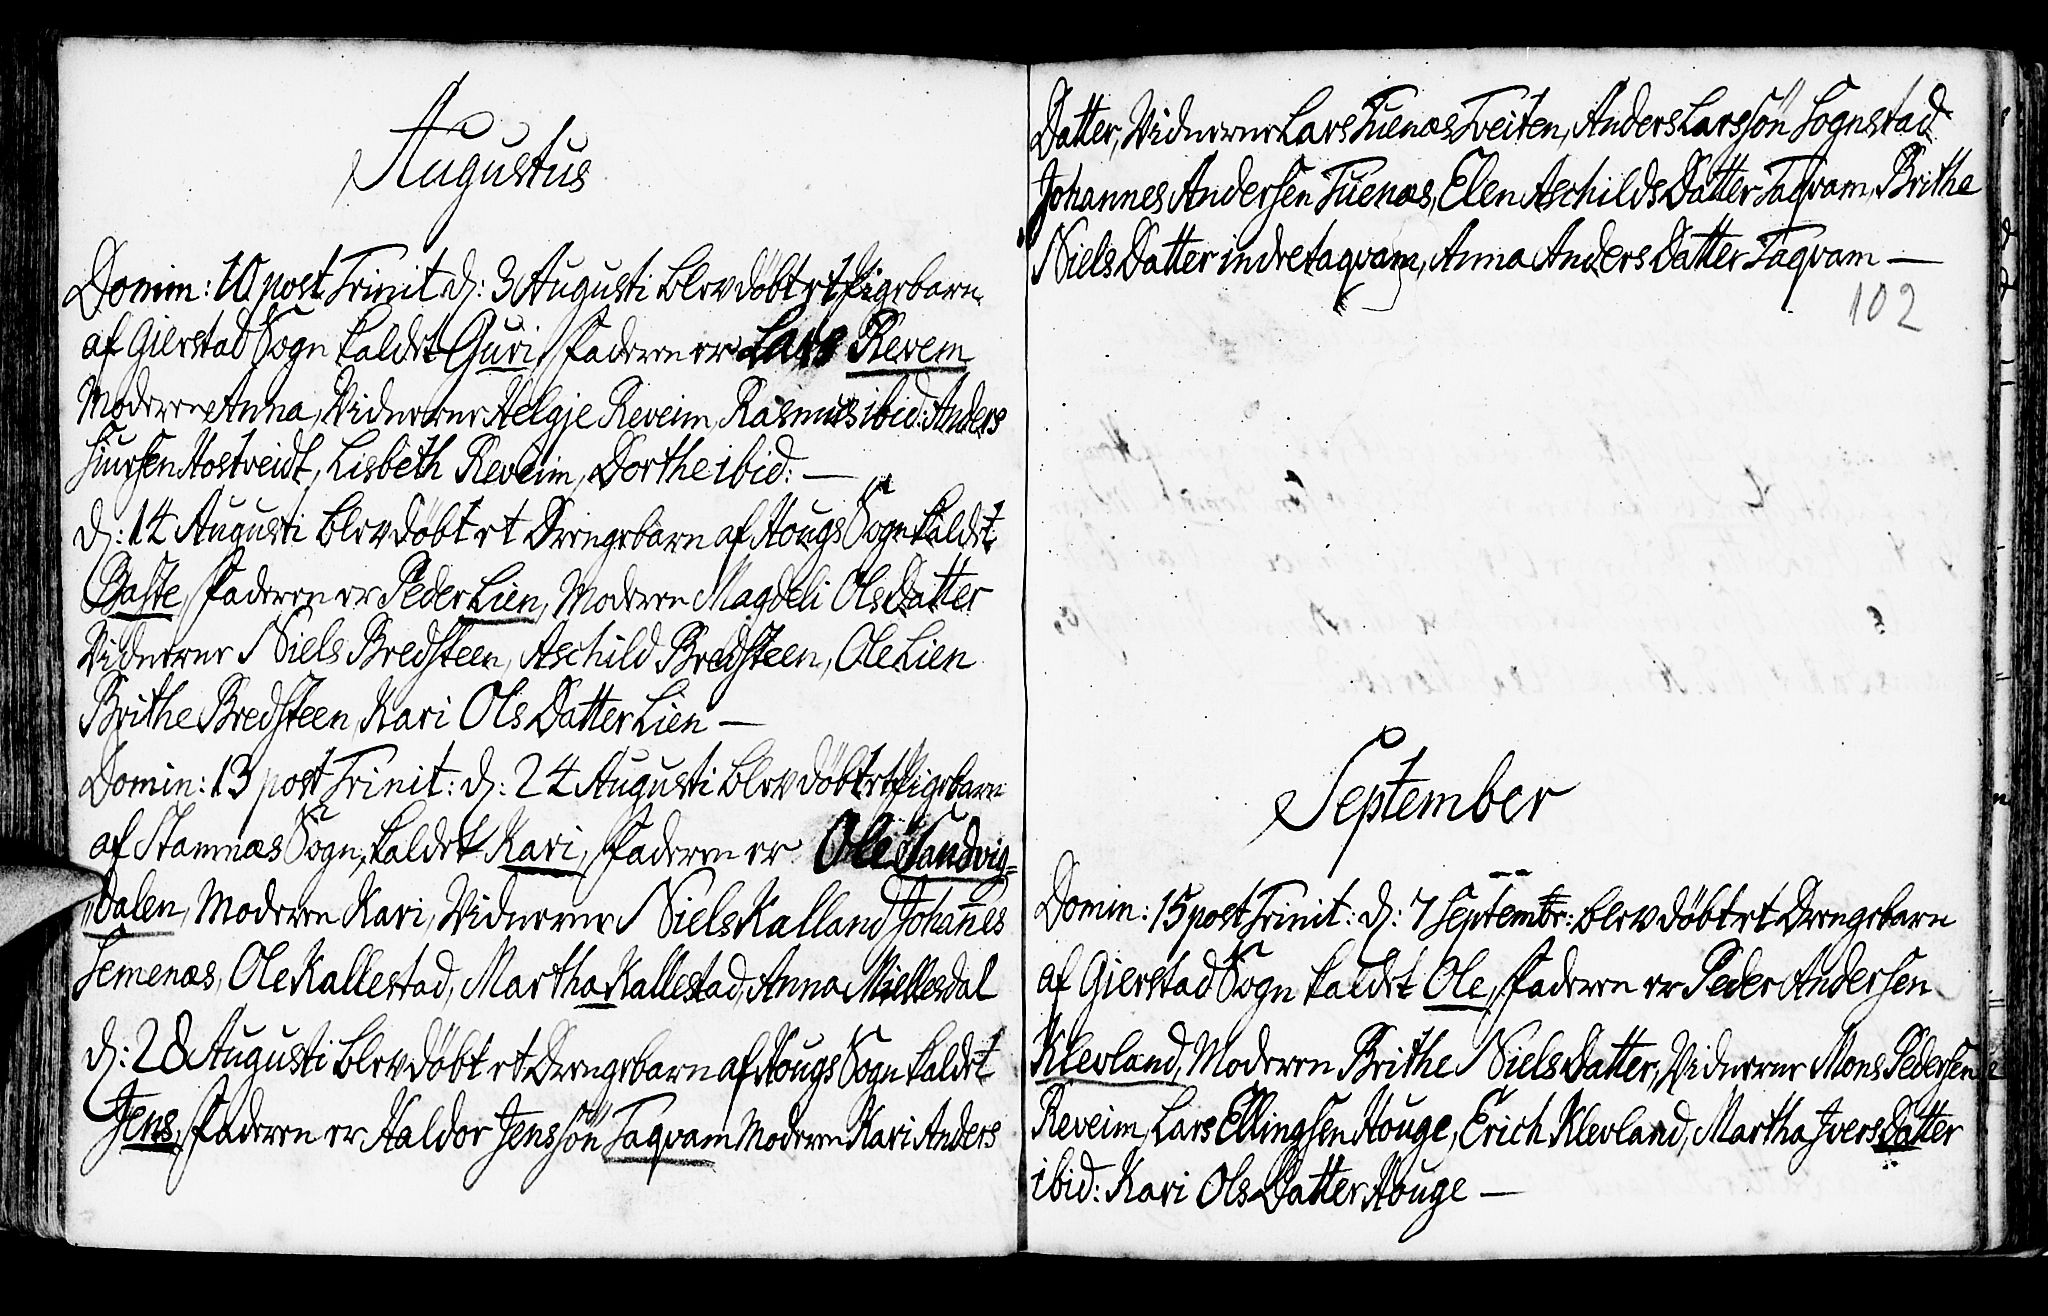 Augustus
Domin: 10 post Trinit d: 3 Augusti blev döbt et Pigebarn
af Gierstad Sogn kaldet Guri, Faderen er Lars Revem
Moderen Anna, Vidnerne Helgje Reveim, Rasmus ibid: Anders
Siursen Hostveidt, Lisbeth Reveim, Dorthe ibid: —
d: 14 Augusti blev döbt et Drengebarn af Hougs Sogn kaldet
Baste, Faderen er Peder Lien, Moderen Magdeli OlsDatter
Vidnerne Niels Bredsteen, Aschild Bredsteen, Ole Lien
Brithe Bredsteen, Kari OlsDatter Lien —
Domin: 13 post Trinit: d: 24 Augusti blev döbt et Pigebarn
af Stamnæs Sogn, kaldet Kari, Faderen er Ole Sandvig=
Dalen, Moderen Kari, Vidnerne Niels Kalland Johannes
Semenæs, Ole Kallestad, Martha Kallestad, Anna Miellesdal
d: 28 Augusti blev döbt et Drengebarn af Hougs Sogn kaldet
Jens, Faderen er Haldor Jenssön Taqvam Moderen Kari Anders
Datter, Vidnerne Lars Tuenæs Tveiten, Anders Larssön Sognstad
Johannes Andersen Tuenæs, Elen AschildsDatter Taqvam, Brithe
NielsDatter indretaqvam, Anna AndersDatter Taqvam —
102
September
Domin: 15 post Trinit: d: 7 Septembr: blev döbt et Drengebarn
af Gierstad Sogn kaldet Ole, Faderen er Peder Andersen
Klevland, Moderen Brithe NielsDatter, Vidnerne Mons Pedersen
Reveim, Lars Ellingsen Houge, Erich Klevland, Martha IversDatter
ibid: Kari OlsDatter Houge —